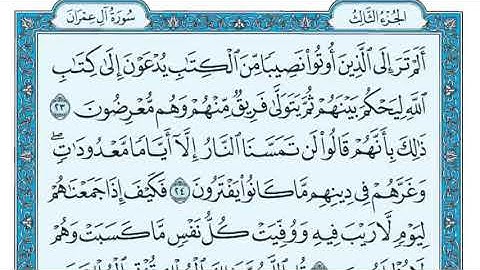 الجزء الثالث
سورة آل عمران
أَلَمْ تَرَ إِلَى الَّذِينَ أُوتُوا نَصِيبًا مِّنَ الْكِتَابِ يُدْعَوْنَ إِلَىٰ كِتَابِ
اللَّهِ لِيَحْكُمَ بَيْنَهُمْ ثُمَّ يَتَوَلَّىٰ فَرِيقٌ مِّنْهُمْ وَهُم مُّعْرِضُونَ ٢٣
ذَٰلِكَ بِأَنَّهُمْ قَالُوا لَن تَمَسَّنَا النَّارُ إِلَّا أَيَّامًا مَّعْدُودَاتٍ ۖ
وَغَرَّهُمْ فِي دِينِهِم مَّا كَانُوا يَفْتَرُونَ ٢٤ فَكَيْفَ إِذَا جَمَعْنَاهُمْ
لِيَوْمٍ لَّا رَيْبَ فِيهِ وَوُفِّيَتْ كُلُّ نَفْسٍ مَّا كَسَبَتْ وَهُمْ